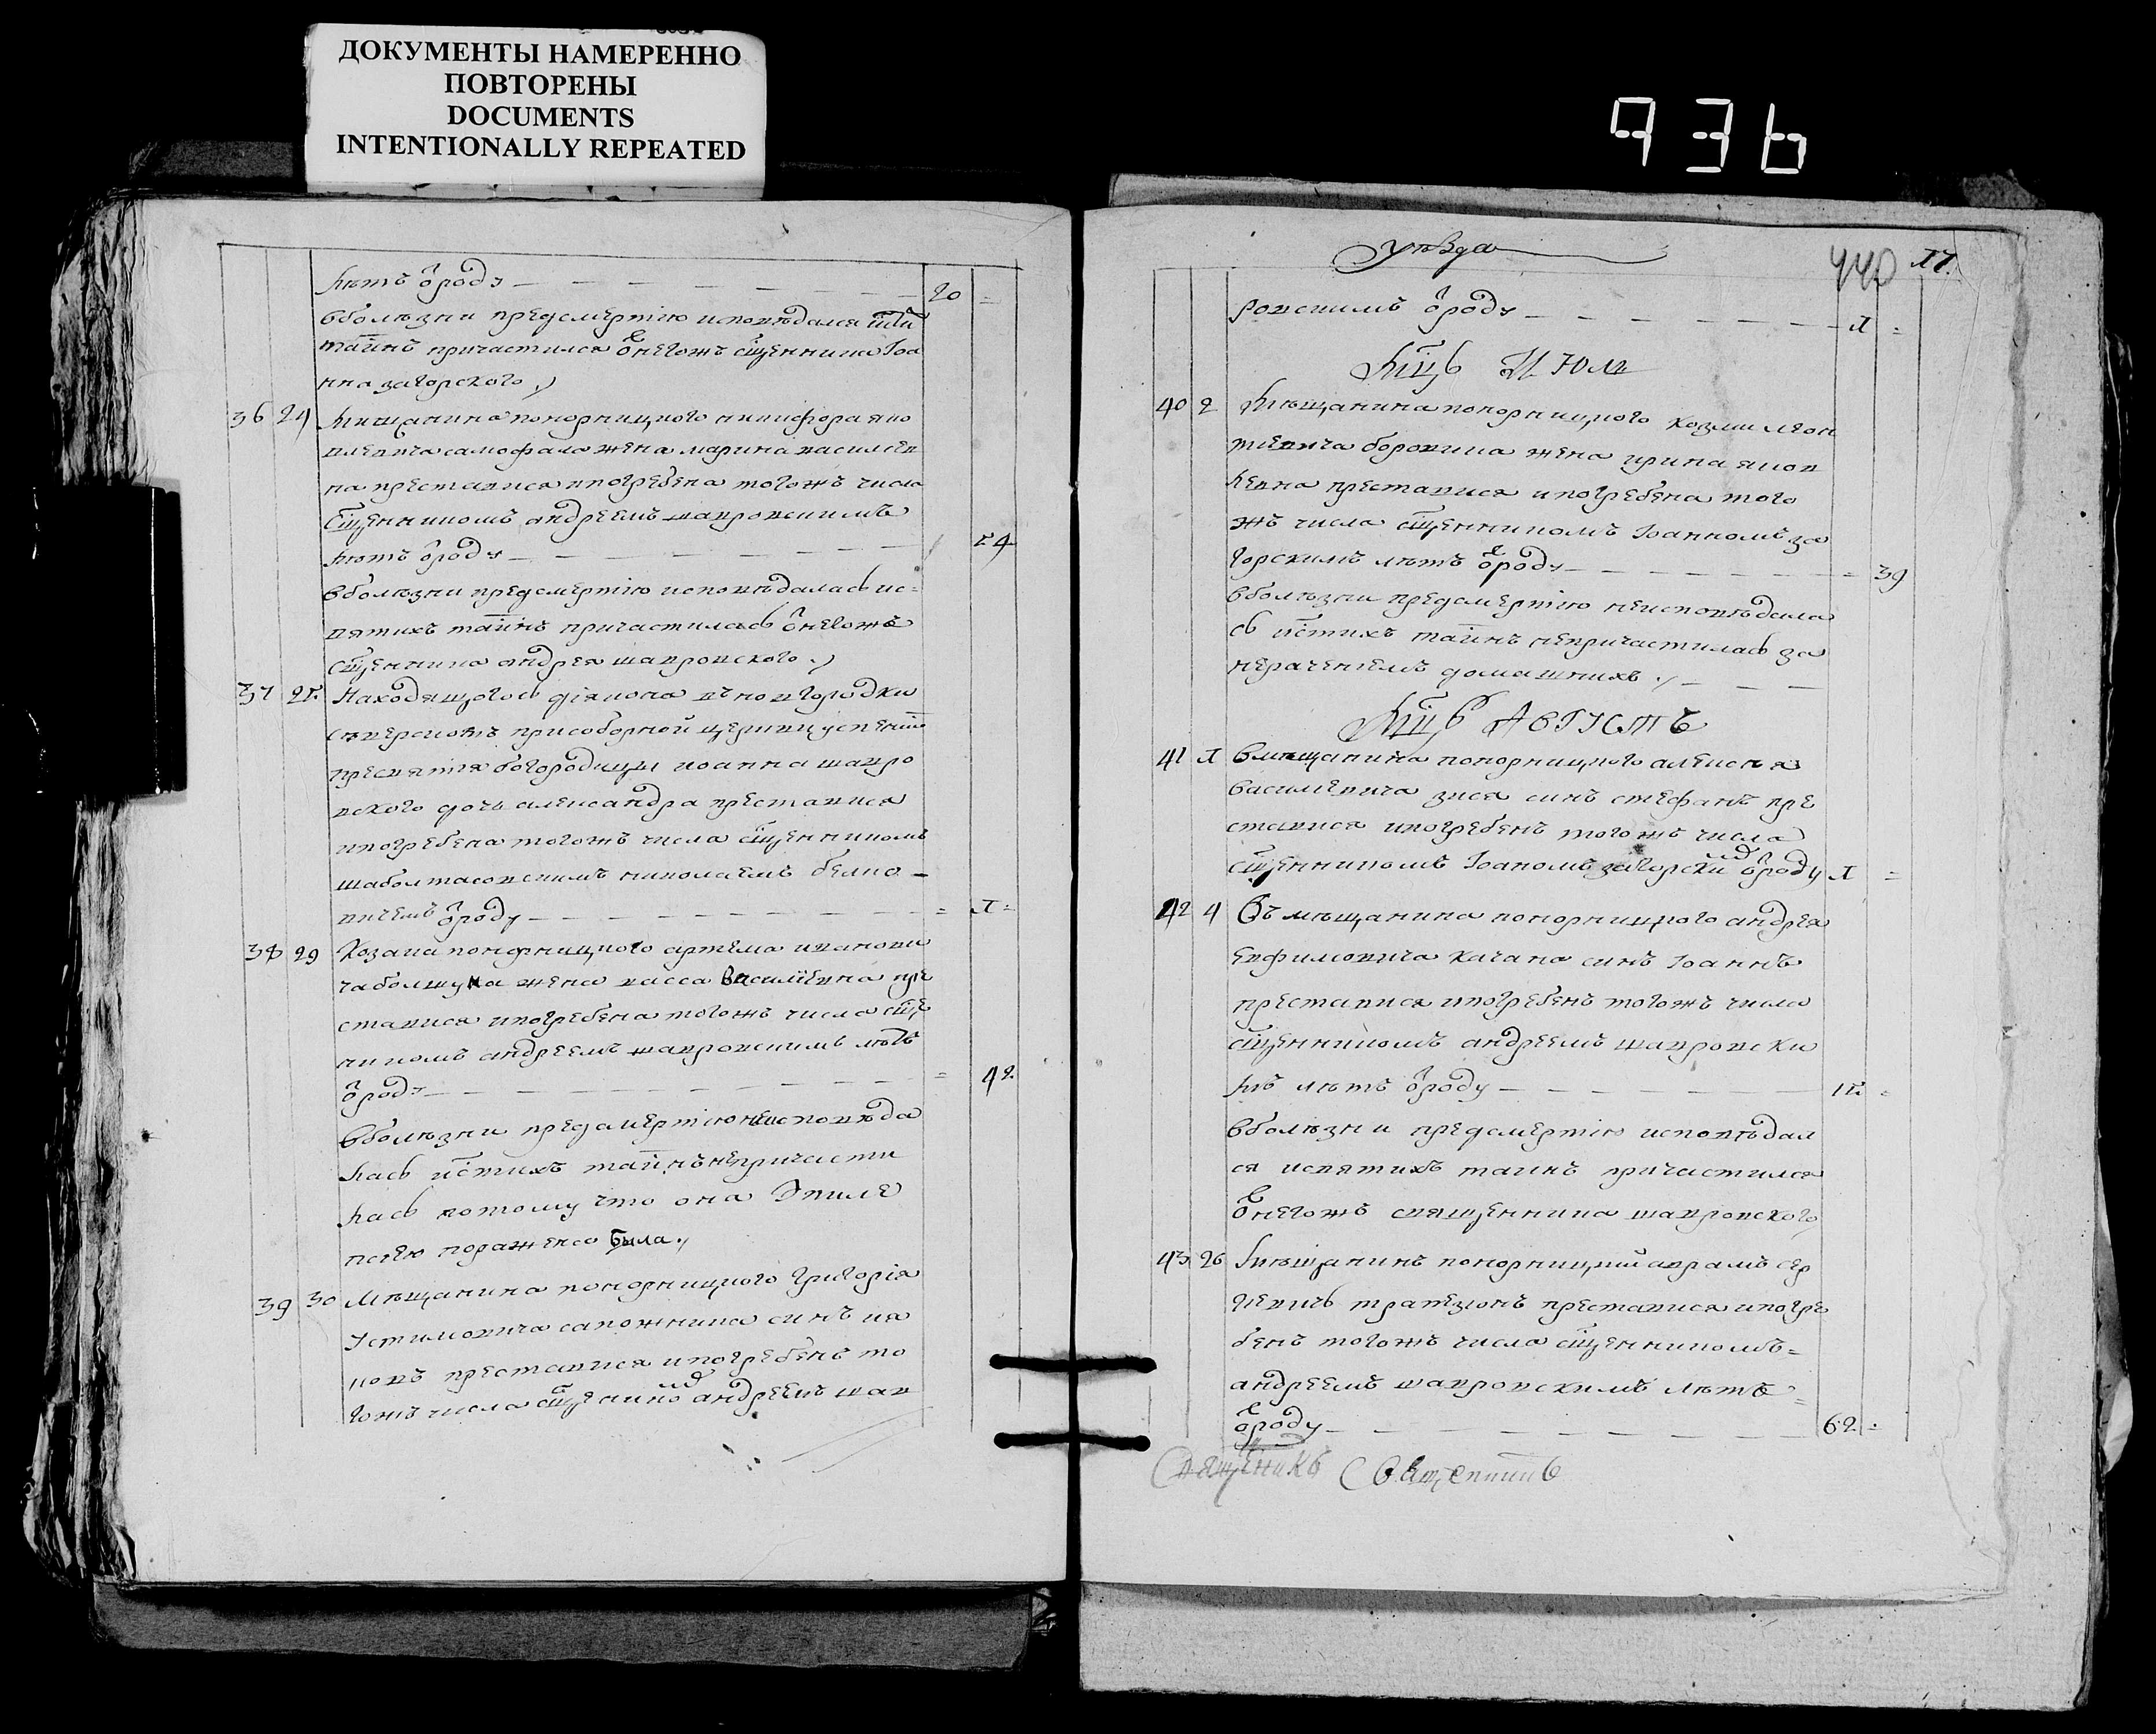 ДОКУМЕНТЫ НАМЕРЕННО
ПОВТОРЕНЫ
DOCUMENTS
INTENTIONALLY REPEATED
936
лѣтъ ѿроду 20
вболѣзни предсмертію исповѣдался
таинъ причастился ѿнегожъ сщенника Іоа
нна загорского
36 24 мищанина понорницкого никифора яко
влевича самофала жена марина василев
на преставися ипогребена тогожъ числа
сщенникомъ андреемъ шавровскимъ
лѣтъ ѿроду
вболѣзни предсмертію исповѣдалась ис
вятихъ таинъ причастилась ѿнегожъ
сщенника андрея шавровского
37 Находящогось діякона въновгородки
сѣверскомъ присоборной церкви успенія
пресвятія богородици иоанна шавро
вского дочь александра преставися
ипогребена тогожъ числа сщенникомъ
шаболтасовскимъ николаемъ
вичемъ ѿроду
38 29 Козака понорницкого артема иванови
ча жена васса василіевна пре
ставися ипогребена тогожъ числа сще
никомъ андреемъ шавровскимъ лѣтъ
ѿроду 42
вболѣзни предсмертію неисповѣда
лась истихъ таинъ непричасти
лась потому что она Эпиле
псіею поражена была
39 30 Мѣщанина понорницкого григорія
устимовича сапожника синъ ия
ковъ преставися ипогребенъ то
гожъ числа сщенико андреемъ шав
уѣзда
440
ровскимъ ѿроду
мцъ Июль
40 2 Мѣщанина понорницкого козми леон
тиевича боровика жена ирина яков
левна преставися ипогребена того
жъ числа сщенникомъ Іоанномъ за
горскимъ лѣтъ ѿроду 39
вболѣзни предсмертію неисповѣдала
сь истихъ таинъ непричастилась за
нерачениемъ домашнихъ
мцъ Августъ
41 мѣщанина понорницкого алексея
василевича зуся синъ стефанъ пре
ставися ипогребенъ тогожъ числа
сщенникомъ Іоаномъ загорски ѿроду
42 4 въ мѣщанина понорницкого андрея
евфимовича качана синъ Іоаннъ
преставися ипогребенъ тогожъ числа
сщенникомъ андреемъ шавровски
мъ лѣтъ ѿроду
вболѣзни предсмертію исповѣдал
ся исвятихъ таинъ причастился
ѿнегожъ священника шавровского
43 26 Мѣщанинъ понорницкий аврамъ сер
геевичь преставися ипогре
бенъ тогожъ числа сщенникомъ
андреемъ шавровскимъ лѣтъ
ѿроду 62
Священикъ Священникъ